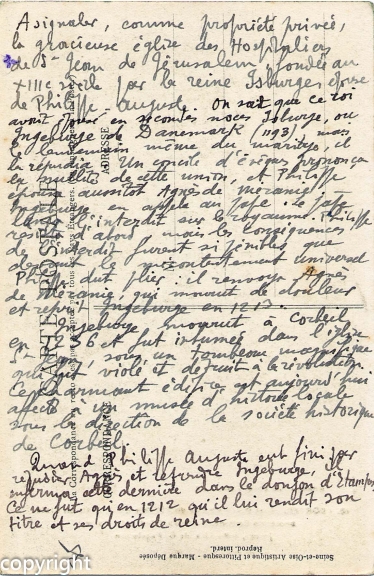 A signaler, comme propriété privée,
la gracieuse église des Hospitaliers
de St Jean de Jérusalem, fondée au
XIIIe siècle par la reine Isburge épouse
de Philippe-Auguste. On sait que ce roi
avait épousé en secondes noces Isburge, ou
Ingeburge de Danemark (1193), mais
le lendemain même du mariage, il
la répudia. Un concile d'évêques prononça
la nullité de cette union, et Philippe
épousa aussitôt Agnès de Méranie.
Ingeburge en appela au pape. Le pape
l'interdit sur le royaume. Philippe
d'abord, mais les conséquences
de l'interdit furent si pénibles que
devant le mécontentement universel
Philippe dut plier : il renvoya Agnès
de Méranie qui mourut de douleur
et reprit Ingeburge en 1213.
Ingeburge mourut à Corbeil
en 1236 et fut inhumée dans l'église
St Jean, sous un tombeau magnifique
qui fut violé et détruit à la révolution.
Ce charmant édifice est aujourd'hui
affecté à un musée d'histoire locale
sous la direction de la société historique
de Corbeil.
Quand Philippe Auguste eut fini par
répudier Agnès et reprendre Ingeburge, il
enferma cette dernière dans le donjon d'Étampes
Ce ne fut qu'en 1212 qu'il lui rendit son
titre et ses droits de reine.
CARTE POSTALE
CORRESPONDANCE
ADRESSE
Seine-et-Oise Artistique et Pittoresque - Marque Déposée
Reprod. interd.
copyright